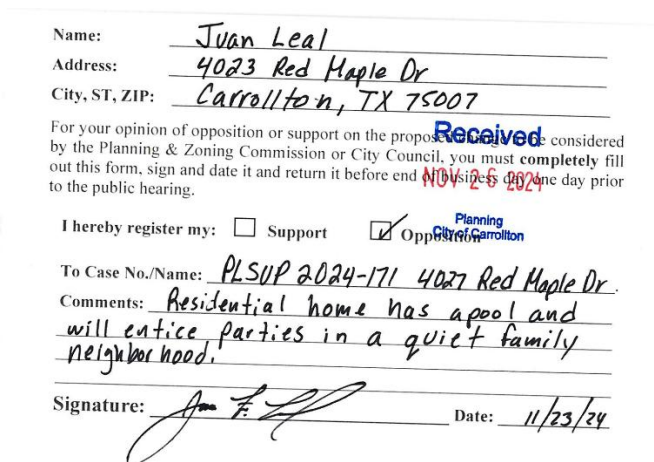 Name: Juan Leal
Address: 4023 Red Maple Dr
City, ST, ZIP: Carrollton, TX 75007
For your opinion of opposition or support on the proposed change to be considered
Received
by the Planning & Zoning Commission or City Council, you must completely fill
out this form, sign and date it and return it before end of business day one day prior
NOV 26 2024
to the public hearing.
Planning
I hereby register my: Support Opposition
City of Carrollton
To Case No./Name: PLSUP 2024-171 4027 Red Maple Dr.
Comments: Residential home has a pool and
will entice parties in a quiet family
neighborhood.
Signature: Date: 11/23/24